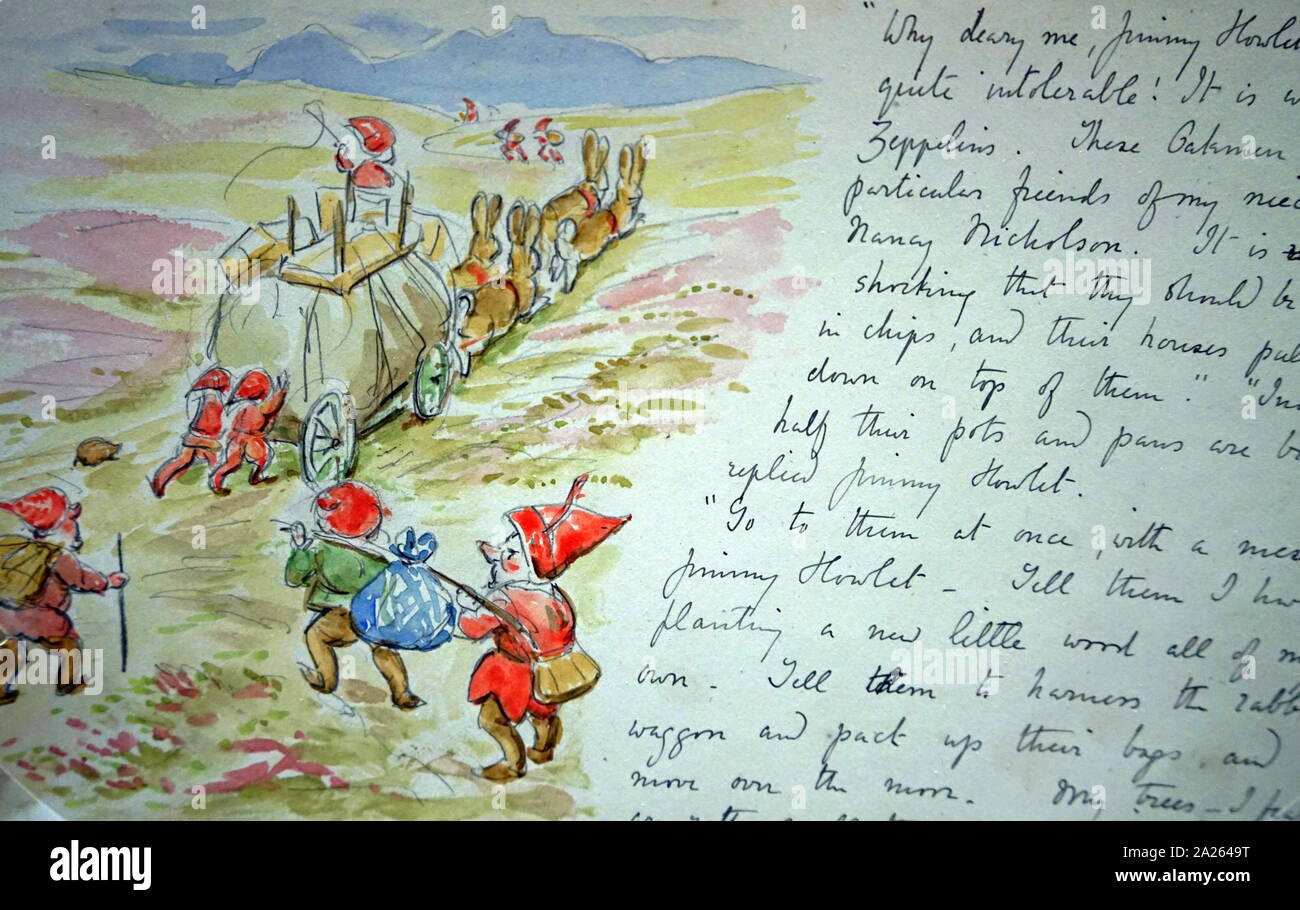 "Why deary me, Jimmy Howlet
quite intolerable! It is w
Zeppelins. These Oakmen
particular friends of my niec
Nancy Nicholson. It is
shocking that they should be
in chips, and their houses pul
down on top of them." "In
half their pots and pans are b
replied Jimmy Howlet.
"Go to them at once, with a mes
Jimmy Howlet - Tell them I hav
planting a new little wood all of m
own - Tell them to harness the rabb
waggon and pack up their bags, and
move over the moor. My trees - I
alamy
Image ID: 2A2649T
www.alamy.com